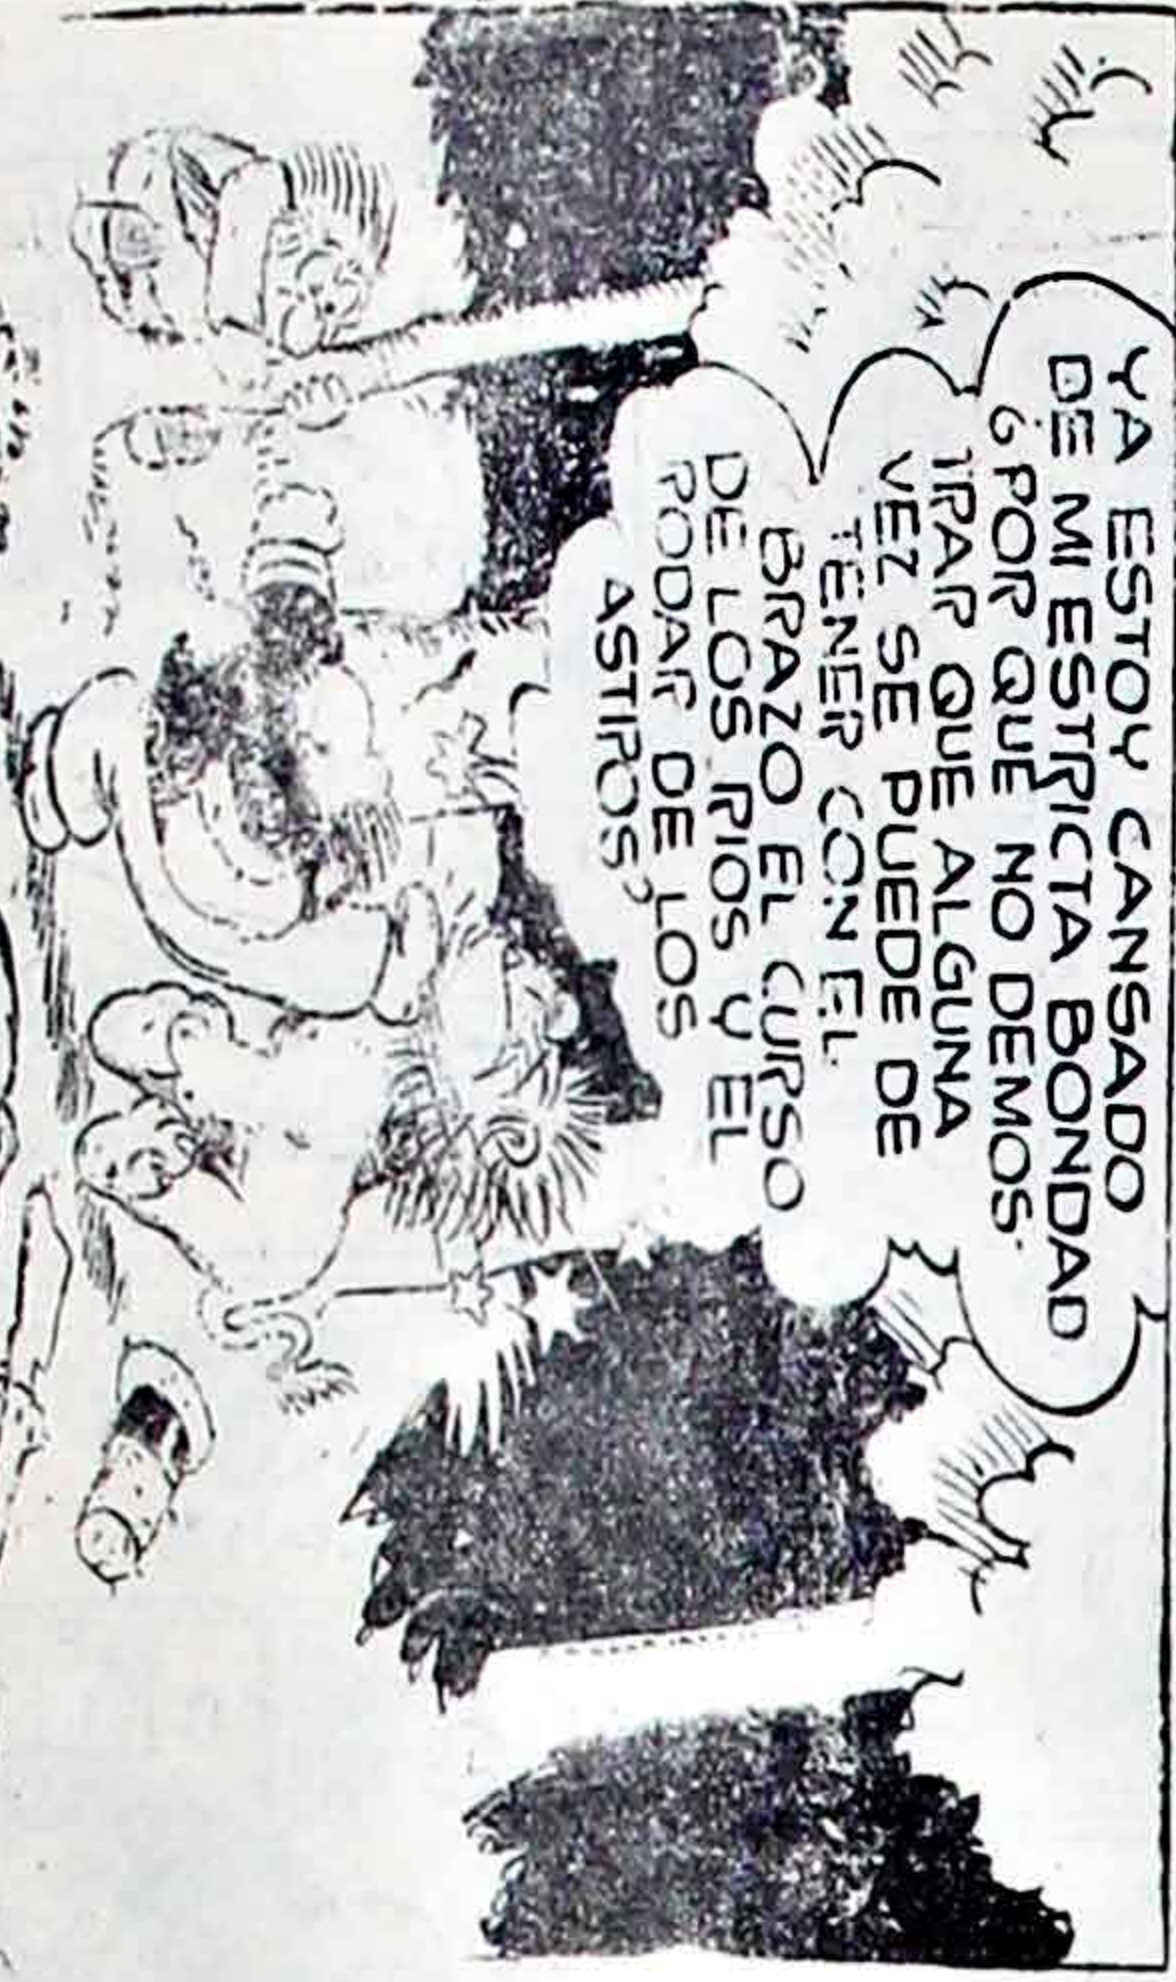 YA ESTOY CANSADO
DE MI ESTRICTA BONDAD
¿POR QUE NO DEMOS-
TRAR QUE ALGUNA
VEZ SE PUEDE DE
TENER CON EL
BRAZO EL CURSO
DE LOS RIOS Y EL
RODAR DE LOS
ASTROS?